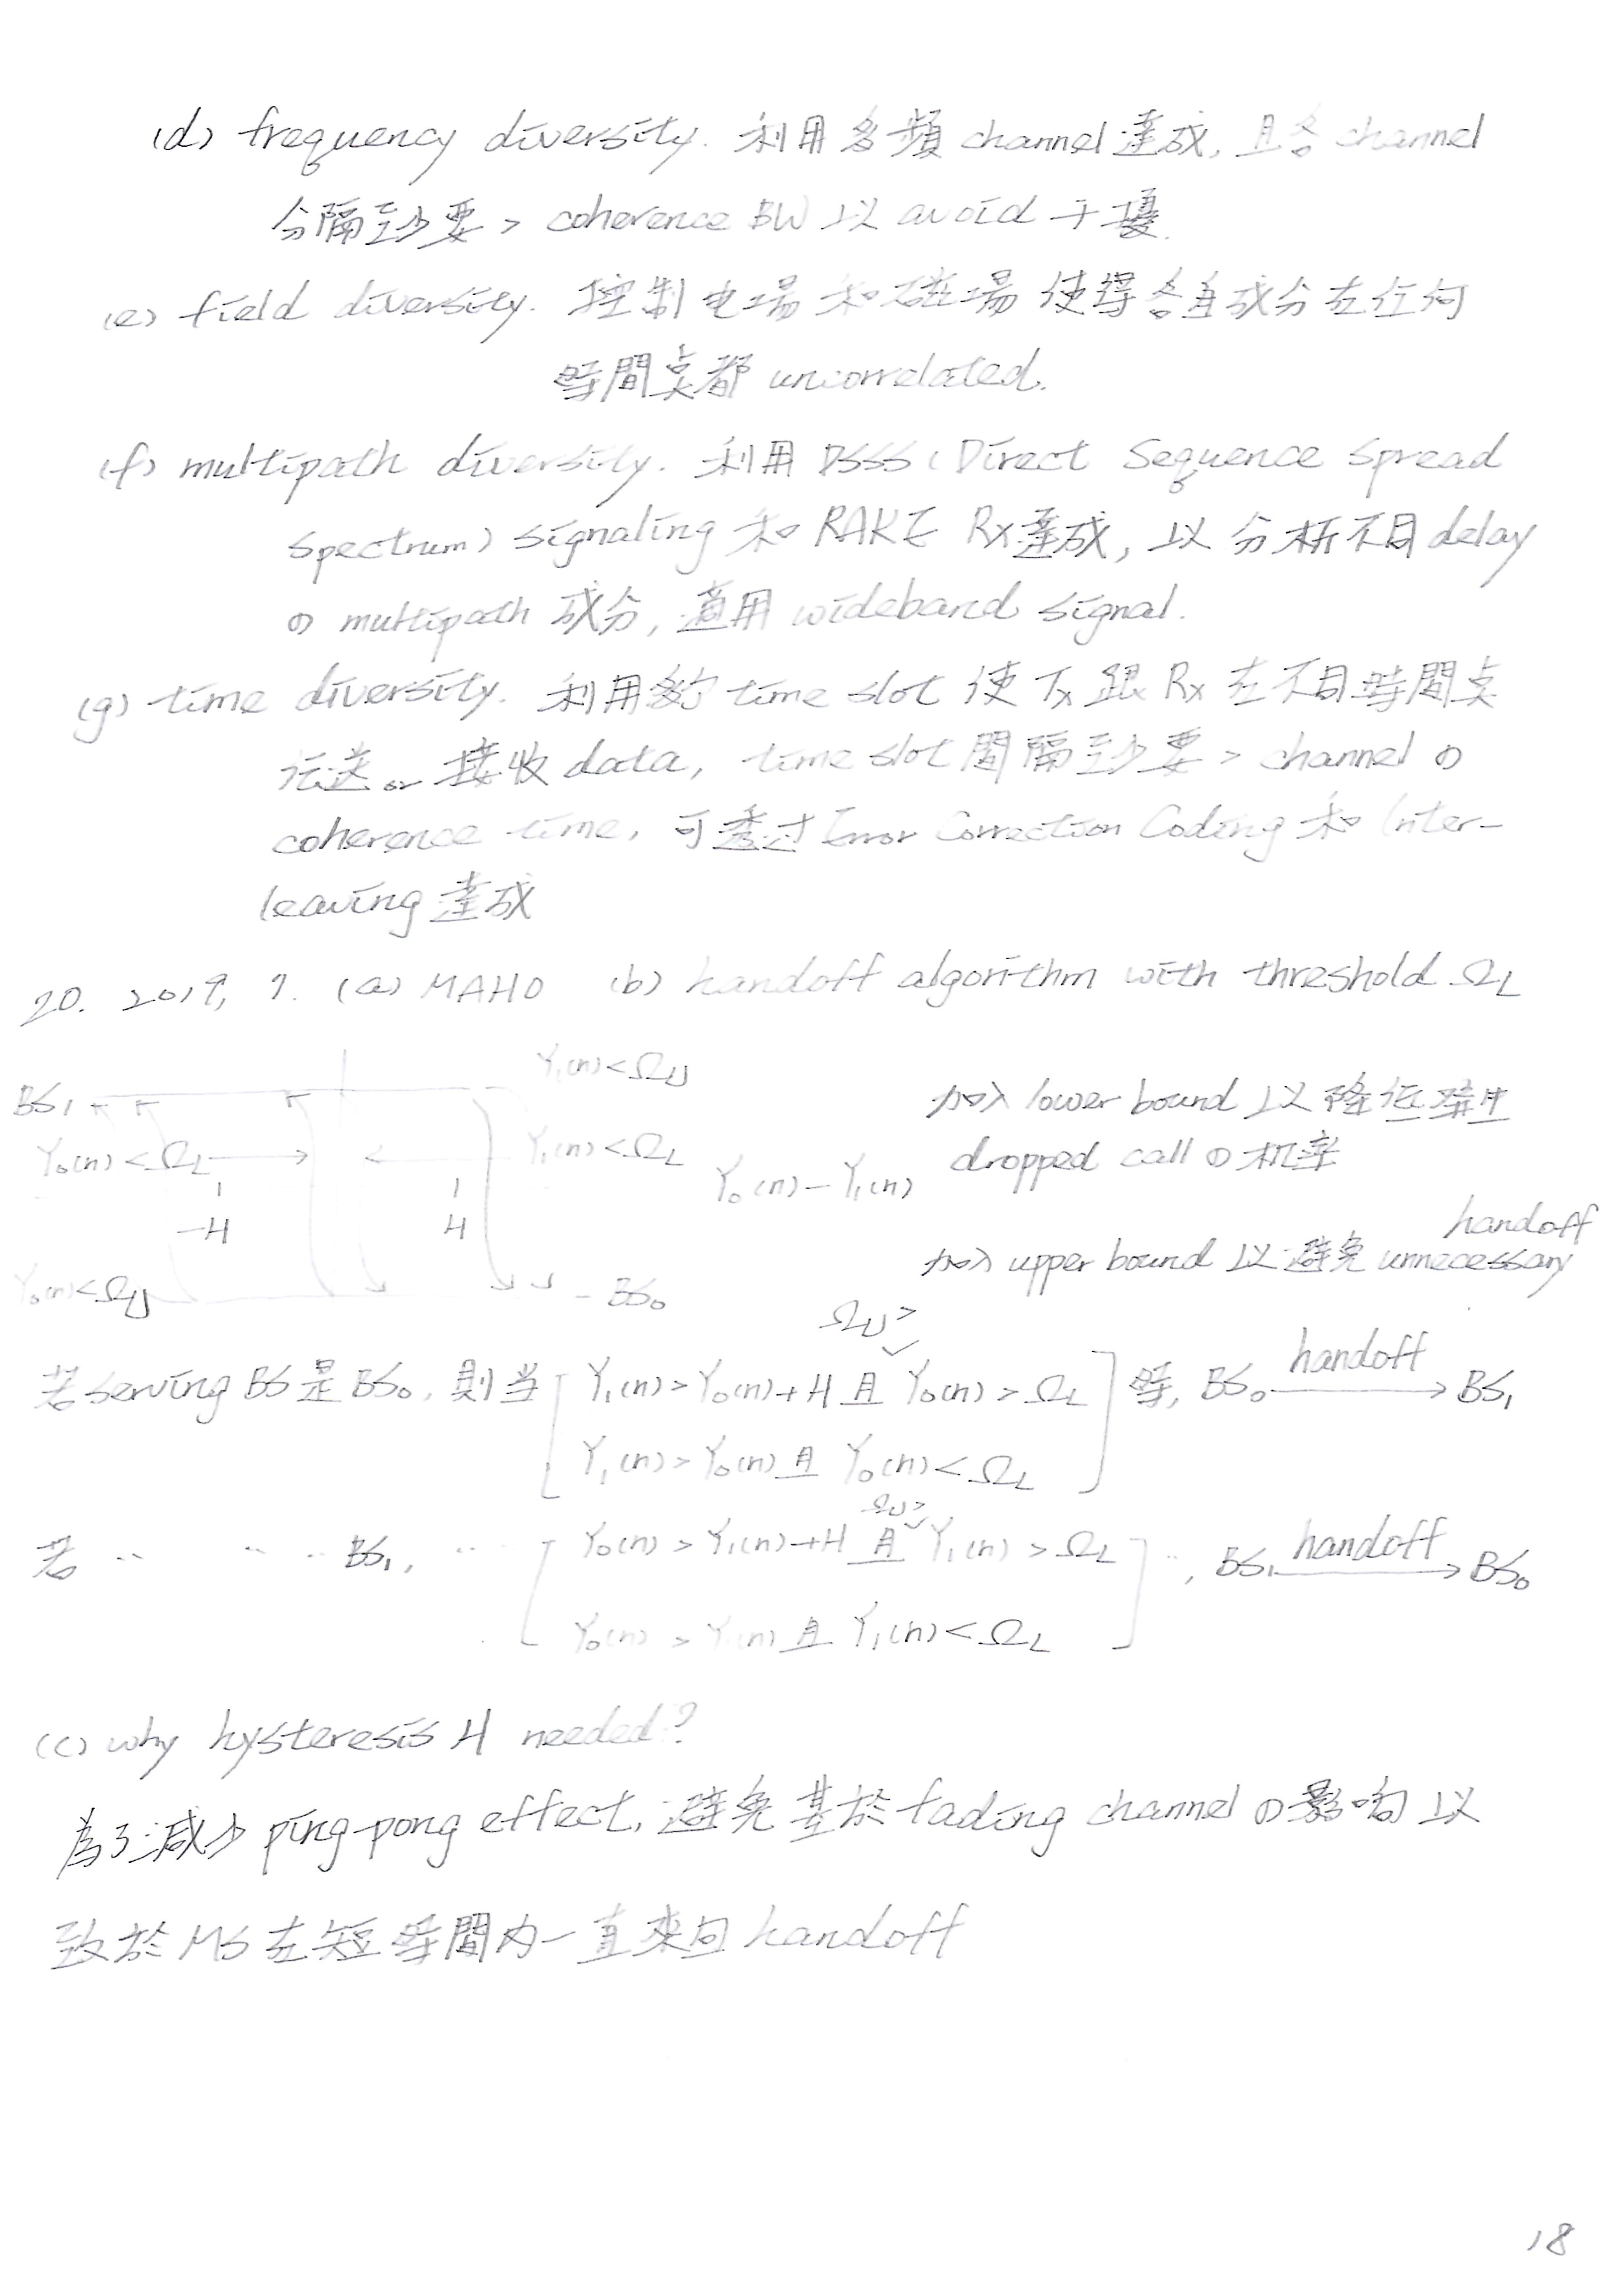 (d) frequency diversity. 利用多頻 channel 達成, 且各 channel
分隔至少要 > coherence BW 以 avoid 干擾.
(e) field diversity. 控制电場和磁場 使得各自成分在任何
時間点都 uncorrelated.
(f) multipath diversity. 利用 DSSS (Direct Sequence Spread
Spectrum) signaling 和 RAKE Rx 達成, 以分析不同 delay
の multipath 成分, 適用 wideband signal.
(g) time diversity. 利用 time slot 使 Tx 跟 Rx 在不同時間点
传送 or 接收 data, time slot 間隔至少要 > channel の
coherence time, 可透过 Error Correction Coding 和 Inter-
leaving 達成
20. 2019, 7. (a) MAHO (b) handoff algorithm with threshold Ω_L
Y₁(n) < Ω_U
BS₁
加入 lower bound 以降低發生
Y₀(n) < Ω_L
Y₁(n) < Ω_L
dropped call の机率
Y₀(n) - Y₁(n)
-H
H
handoff
加入 upper bound 以避免 unnecessary
Y₀(n) < Ω_U
BS₀
Ω_U >
若 serving BS 是 BS₀, 則当 [ Y₁(n) > Y₀(n) + H 且 Y₀(n) > Ω_L ] 時, BS₀ handoff → BS₁
Y₁(n) > Y₀(n) 且 Y₀(n) < Ω_L
Ω_U >
若 ·· ·· ·· BS₁, ·· [ Y₀(n) > Y₁(n) + H 且 Y₁(n) > Ω_L ] ··, BS₁ handoff → BS₀
Y₀(n) > Y₁(n) 且 Y₁(n) < Ω_L
(c) why hysteresis H needed?
為了減少 ping-pong effect, 避免基於 fading channel の影响以
致於 MS 在短時間内一直來回 handoff
18